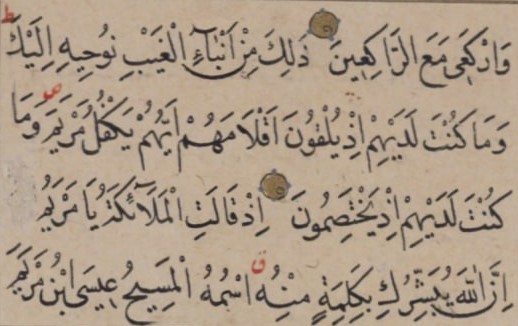 وَارْكَعِي مَعَ الرَّاكِعِينَ ذَلِكَ مِنْ اَنْبَآءِ الْغَيْبِ نُوحِيهِ اِلَيْكَ
وَمَا كُنْتَ لَدَيْهِمْ اِذْ يُلْقُونَ اَقْلَامَهُمْ اَيُّهُمْ يَكْفُلُ مَرْيَمَ وَمَا
كُنْتَ لَدَيْهِمْ اِذْ يَخْتَصِمُونَ اِذْ قَالَتِ الْمَلَآئِكَةُ يَا مَرْيَمُ
اِنَّ اللّٰهَ يُبَشِّرُكِ بِكَلِمَةٍ مِنْهُ اسْمُهُ الْمَسِيحُ عِيسَى ابْنُ مَرْيَمَ